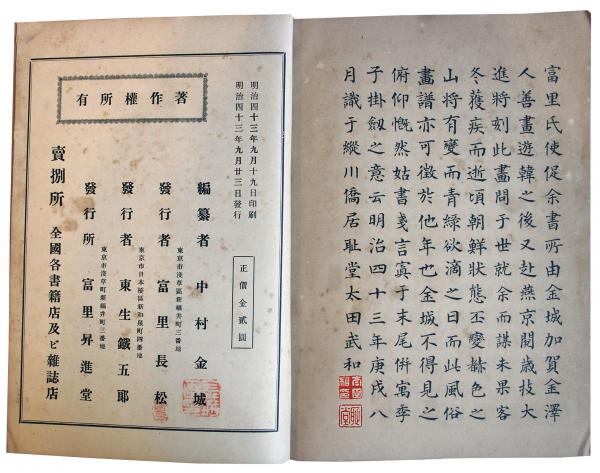 富里氏使促余書所由金城加賀金澤
人善畫遊韓之後又赴燕京閲歳技大
進將刻此畫問于世就余而謀未果客
冬獲疾而逝頃朝鮮狀態丕變赫色之
山將有變而青緑欲滴之日而此風俗
畫譜亦可徴於他年也金城不得見之
俯仰慨然姑書戔言寘于末尾併寓季
子掛劔之意云明治四十三年庚戌八
月識于縱川僑居耻堂太田武和
著作權所有
明治四十三年九月十九日印刷
明治四十三年九月廿三日發行
正價金貳圓
編纂者 中村金城
東京市淺草區新福井町三番地
發行者 富里長松
東京市日本橋區新和泉町四番地
發行者 東生鐵五郎
東京市淺草町新福井町三番地
發行所 富里昇進堂
賣捌所 全國各書籍店及ビ雜誌店